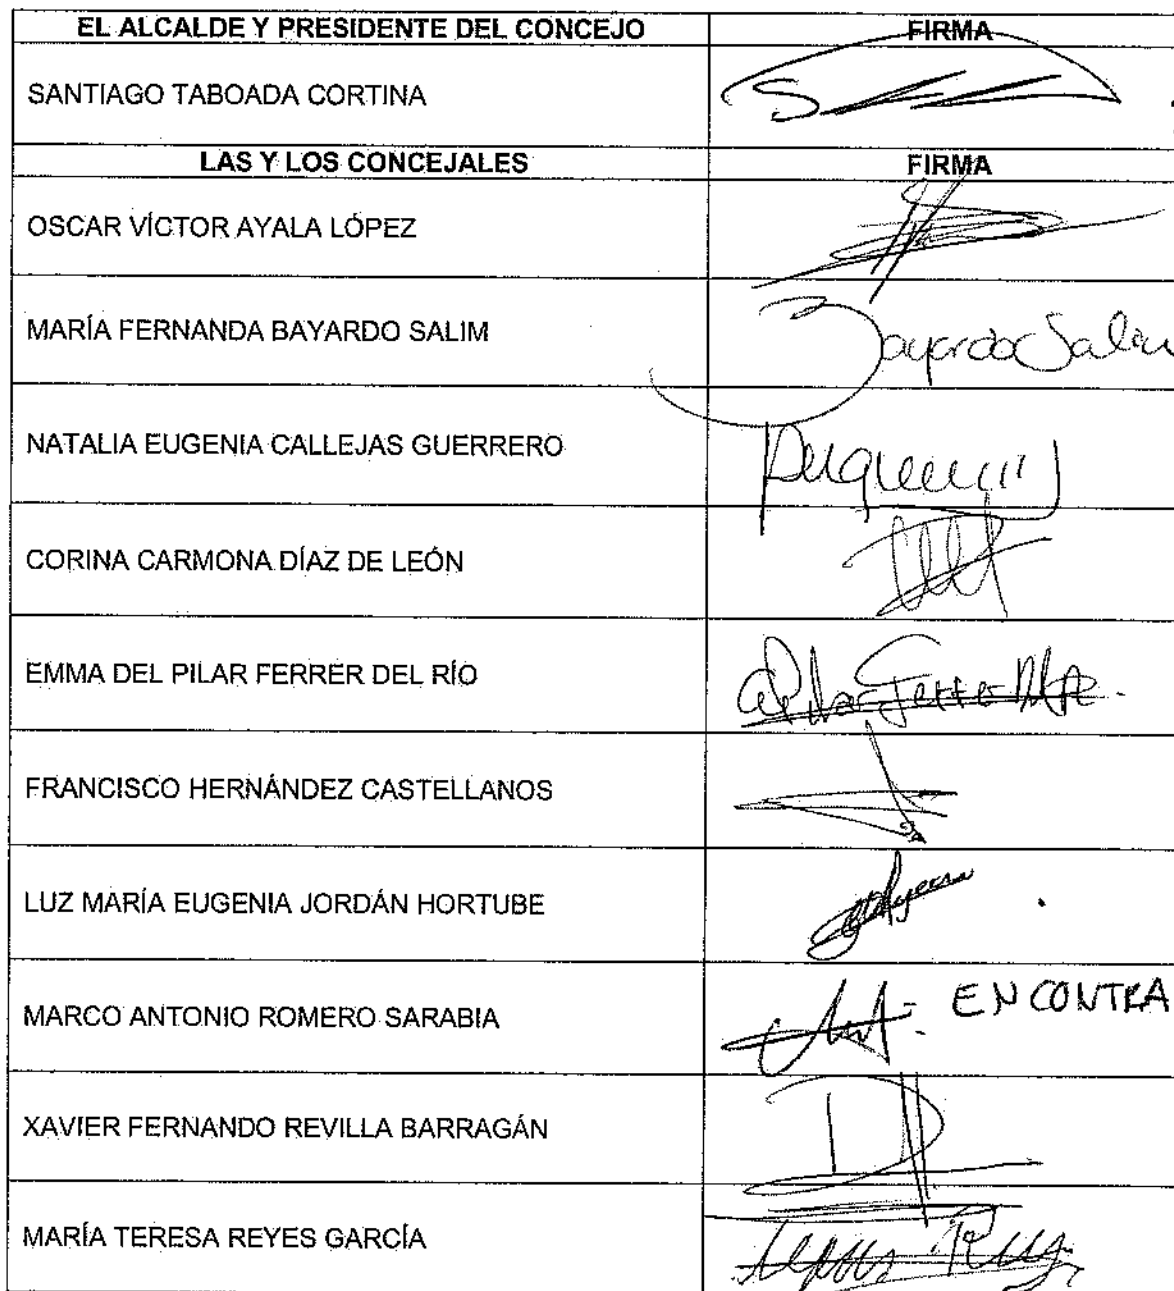 EL ALCALDE Y PRESIDENTE DEL CONCEJO FIRMA
SANTIAGO TABOADA CORTINA
LAS Y LOS CONCEJALES FIRMA
OSCAR VÍCTOR AYALA LÓPEZ
MARÍA FERNANDA BAYARDO SALIM Bayardo Salim
NATALIA EUGENIA CALLEJAS GUERRERO
CORINA CARMONA DÍAZ DE LEÓN
EMMA DEL PILAR FERRER DEL RÍO
FRANCISCO HERNÁNDEZ CASTELLANOS
LUZ MARÍA EUGENIA JORDÁN HORTUBE
MARCO ANTONIO ROMERO SARABIA EN CONTRA
XAVIER FERNANDO REVILLA BARRAGÁN
MARÍA TERESA REYES GARCÍA